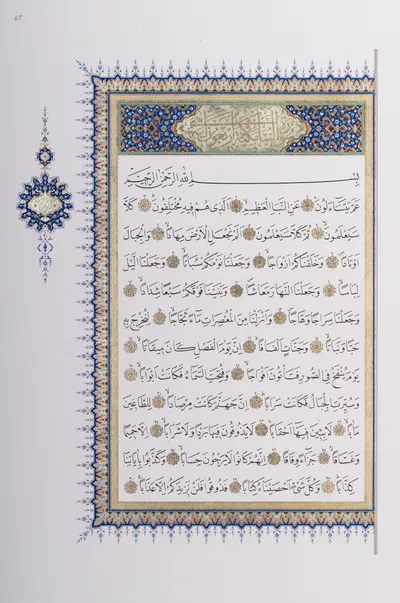 ٥٣
بِسْمِ اللَّهِ الرَّحْمَٰنِ الرَّحِيمِ
عَمَّ يَتَسَاءَلُونَ ۝ عَنِ النَّبَإِ الْعَظِيمِ ۝ الَّذِي هُمْ فِيهِ مُخْتَلِفُونَ ۝ كَلَّا
سَيَعْلَمُونَ ۝ ثُمَّ كَلَّا سَيَعْلَمُونَ ۝ أَلَمْ نَجْعَلِ الْأَرْضَ مِهَادًا ۝ وَالْجِبَالَ
أَوْتَادًا ۝ وَخَلَقْنَاكُمْ أَزْوَاجًا ۝ وَجَعَلْنَا نَوْمَكُمْ سُبَاتًا ۝ وَجَعَلْنَا اللَّيْلَ
لِبَاسًا ۝ وَجَعَلْنَا النَّهَارَ مَعَاشًا ۝ وَبَنَيْنَا فَوْقَكُمْ سَبْعًا شِدَادًا ۝
وَجَعَلْنَا سِرَاجًا وَهَّاجًا ۝ وَأَنْزَلْنَا مِنَ الْمُعْصِرَاتِ مَاءً ثَجَّاجًا ۝ لِنُخْرِجَ بِهِ
حَبًّا وَنَبَاتًا ۝ وَجَنَّاتٍ أَلْفَافًا ۝ إِنَّ يَوْمَ الْفَصْلِ كَانَ مِيقَاتًا ۝
يَوْمَ يُنْفَخُ فِي الصُّورِ فَتَأْتُونَ أَفْوَاجًا ۝ وَفُتِحَتِ السَّمَاءُ فَكَانَتْ أَبْوَابًا ۝
وَسُيِّرَتِ الْجِبَالُ فَكَانَتْ سَرَابًا ۝ إِنَّ جَهَنَّمَ كَانَتْ مِرْصَادًا ۝ لِلطَّاغِينَ
مَآبًا ۝ لَابِثِينَ فِيهَا أَحْقَابًا ۝ لَا يَذُوقُونَ فِيهَا بَرْدًا وَلَا شَرَابًا ۝ إِلَّا حَمِيمًا
وَغَسَّاقًا ۝ جَزَاءً وِفَاقًا ۝ إِنَّهُمْ كَانُوا لَا يَرْجُونَ حِسَابًا ۝ وَكَذَّبُوا بِآيَاتِنَا
كِذَّابًا ۝ وَكُلَّ شَيْءٍ أَحْصَيْنَاهُ كِتَابًا ۝ فَذُوقُوا فَلَنْ نَزِيدَكُمْ إِلَّا عَذَابًا ۝